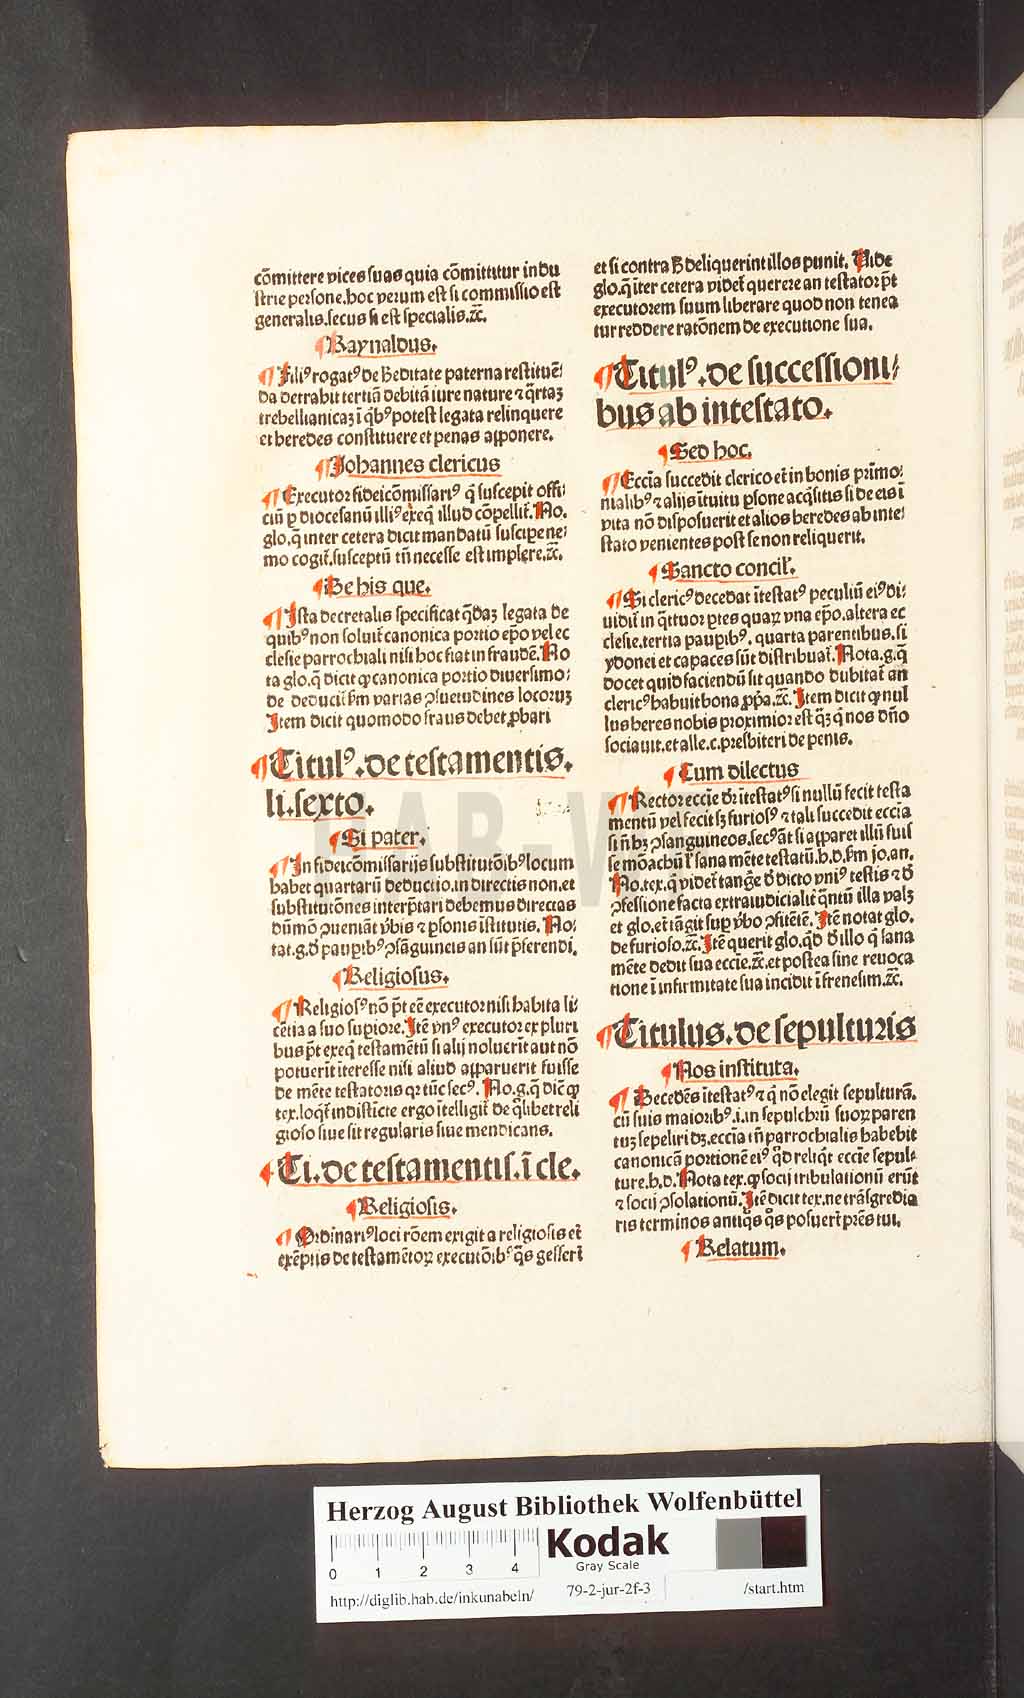 cōmittere vices suas quia cōmittitur indu
strie persone.hoc verum est si commissio est
generalis.secus si est specialis.ꝛc̄.
¶ Raynaldus.
¶ Filiꝰ rogatꝰ de hereditate paterna restituē⸗
da detrahit tertiā debitā iure nature ⁊ q̄rtaꝫ
trebellianicaꝫ ī q̄bꝰ potest legata relinquere
et heredes constituere et penas apponere.
¶ Johannes clericus
¶ Executor fideicōmissariꝰ q̄ suscepit offi⸗
ciū ꝑ diocesanū illiꝰ exeq̄ illud cōpellit̄. No.
glo.q̄ inter cetera dicit mandatū suscipe ne⸗
mo cogit̄.susceptū tn̄ necesse est implere.ꝛc̄.
¶ De his que.
¶ Ista decretalis specificat q̄daꝫ legata de
quibꝰ non soluit̄ canonica portio ep̄o vel ec
clesie parrochiali nisi hoc fiat in fraudē. No
ta glo.q̄ dicit ꝙ canonica portio diuersimo⸗
de deducit̄ ẜm varias ꝯsuetudines locoruꝫ
Item dicit quomodo fraus debet ꝓbari
¶ Titulꝰ.de testamentis.
li.sexto.
¶ Si pater.
¶ In fideicōmissarijs substitutōībꝰ locum
habet quartarū deductio.in directis non.et
substitutōnes interp̄tari debemus directas
dūmō ꝯueniāt v̄bis ⁊ ꝑsonis īstitutis. No⸗
tat.g.đ pauꝑibꝰ ꝯsāguineis an sūt p̄ferendi.
¶ Religiosus.
¶ Religiosꝰ nō pōt eē executor nisi habita li⸗
cētia a suo supiore. Itē vnꝰ executor ex pluri
bus pōt exeq̄ testamētū si alij noluerit aut nō
potuerit īteresse nisi aliud apparuerit fuisse
de mēte testatoris qꝛ tūc secꝰ. No.g.q̄ dic̄ ꝙ
tex.loq̄t̄ indistīcte ergo ītelligit̄ de q̄libet reli
gioso siue sit regularis siue mendicans.
¶ Ti.de testamentis.ī cle.
¶ Religiosis.
¶ Ordinariꝰ loci rōem exigit a religiosis et̄
exēptis de testamētoꝝ executōībꝰ q̄s gesser̄t
et si contra ħ deliquerint illos punit. Vide
glo.q̄ īter cetera videt̄ querere an testator pōt
executorem suum liberare quod non tenea
tur reddere ratōnem de executione sua.
¶ Titulꝰ.de successioni⸗
bus ab intestato.
¶ Sed hoc.
¶ Eccīa succedit clerico et̄ in bonis pr̄imo⸗
nialibꝰ ⁊ alijs ītuitu ꝑsone acq̄sitis si de eis ī
vita nō disposuerit et alios heredes ab inte⸗
stato venientes post se non reliquerit.
¶ Sancto concil̄.
¶ Si clericꝰ decedat ītestatꝰ peculiū eiꝰ di⸗
uidit̄ in q̄ttuor ꝑtes quaꝝ vna ep̄o.altera ec
clesie.tertia pauꝑibꝰ. quarta parentibus.si
ydonei et capaces sūt distribuat̄. Nota.g.q̄
docet quid faciendū sit quando dubitat̄ an
clericꝰ habuit bona ꝓp̄a.ꝛc̄. Item dicit ꝙ nul
lus heres nobis proximior est q̄ꝫ q̄ nos dn̄o
sociauit.et alle.c.presbiteri de penis.
¶ Cum dilectus
¶ Rector eccīe dr̄ ītestatꝰ si nullū fecit testa
mentū vel fecit sꝫ furiosꝰ ⁊ tali succedit eccīa
si n̄ hꝫ ꝯsanguineos.secꝰ āt si apparet illū fuis
se mōachū ꝉ sana mēte testatū.h.d.ẜm jo.an.
No.tex.q̄ videt̄ tanḡe đ dicto vniꝰ testis ⁊ đ
ꝯfessione facta extraiudicialit̄ q̄ntū illa valꝫ
et glo.et̄ tāgit suꝑ v̄bo ꝯfitētē. Itē notat glo.
de furioso.ꝛc̄. Itē querit glo.q̄đ đ illo q̄ sana
mēte dedit sua eccīe.ꝛc̄.et postea sine reuoca
tione ī infirmitate sua incidit ī frenesim.ꝛc̄.
¶ Titulus.de sepulturis
¶ Nos instituta.
¶ Decedēs ītestatꝰ ⁊ q̄ nō elegit sepulturā.
cū suis maioribꝰ.i.in sepulchrū suoꝝ paren
tuꝫ sepeliri dꝫ.eccīa tn̄ parrochialis habebit
canonicā portionē eiꝰ q̄đ reliq̄t eccīe sepul⸗
ture.h.d. Nota tex.ꝙ socij tribulationū erūt
⁊ socij ꝯsolationū. Itē dicit tex.ne trāsgredia
ris terminos antiq̄s q̄s posuer̄t pr̄es tui.
¶ Relatum.
HAB-W
Herzog August Bibliothek Wolfenbüttel
0 1 2 3 4
Kodak
Gray Scale
http://diglib.hab.de/inkunabeln/ 79-2-jur-2f-3 /start.htm